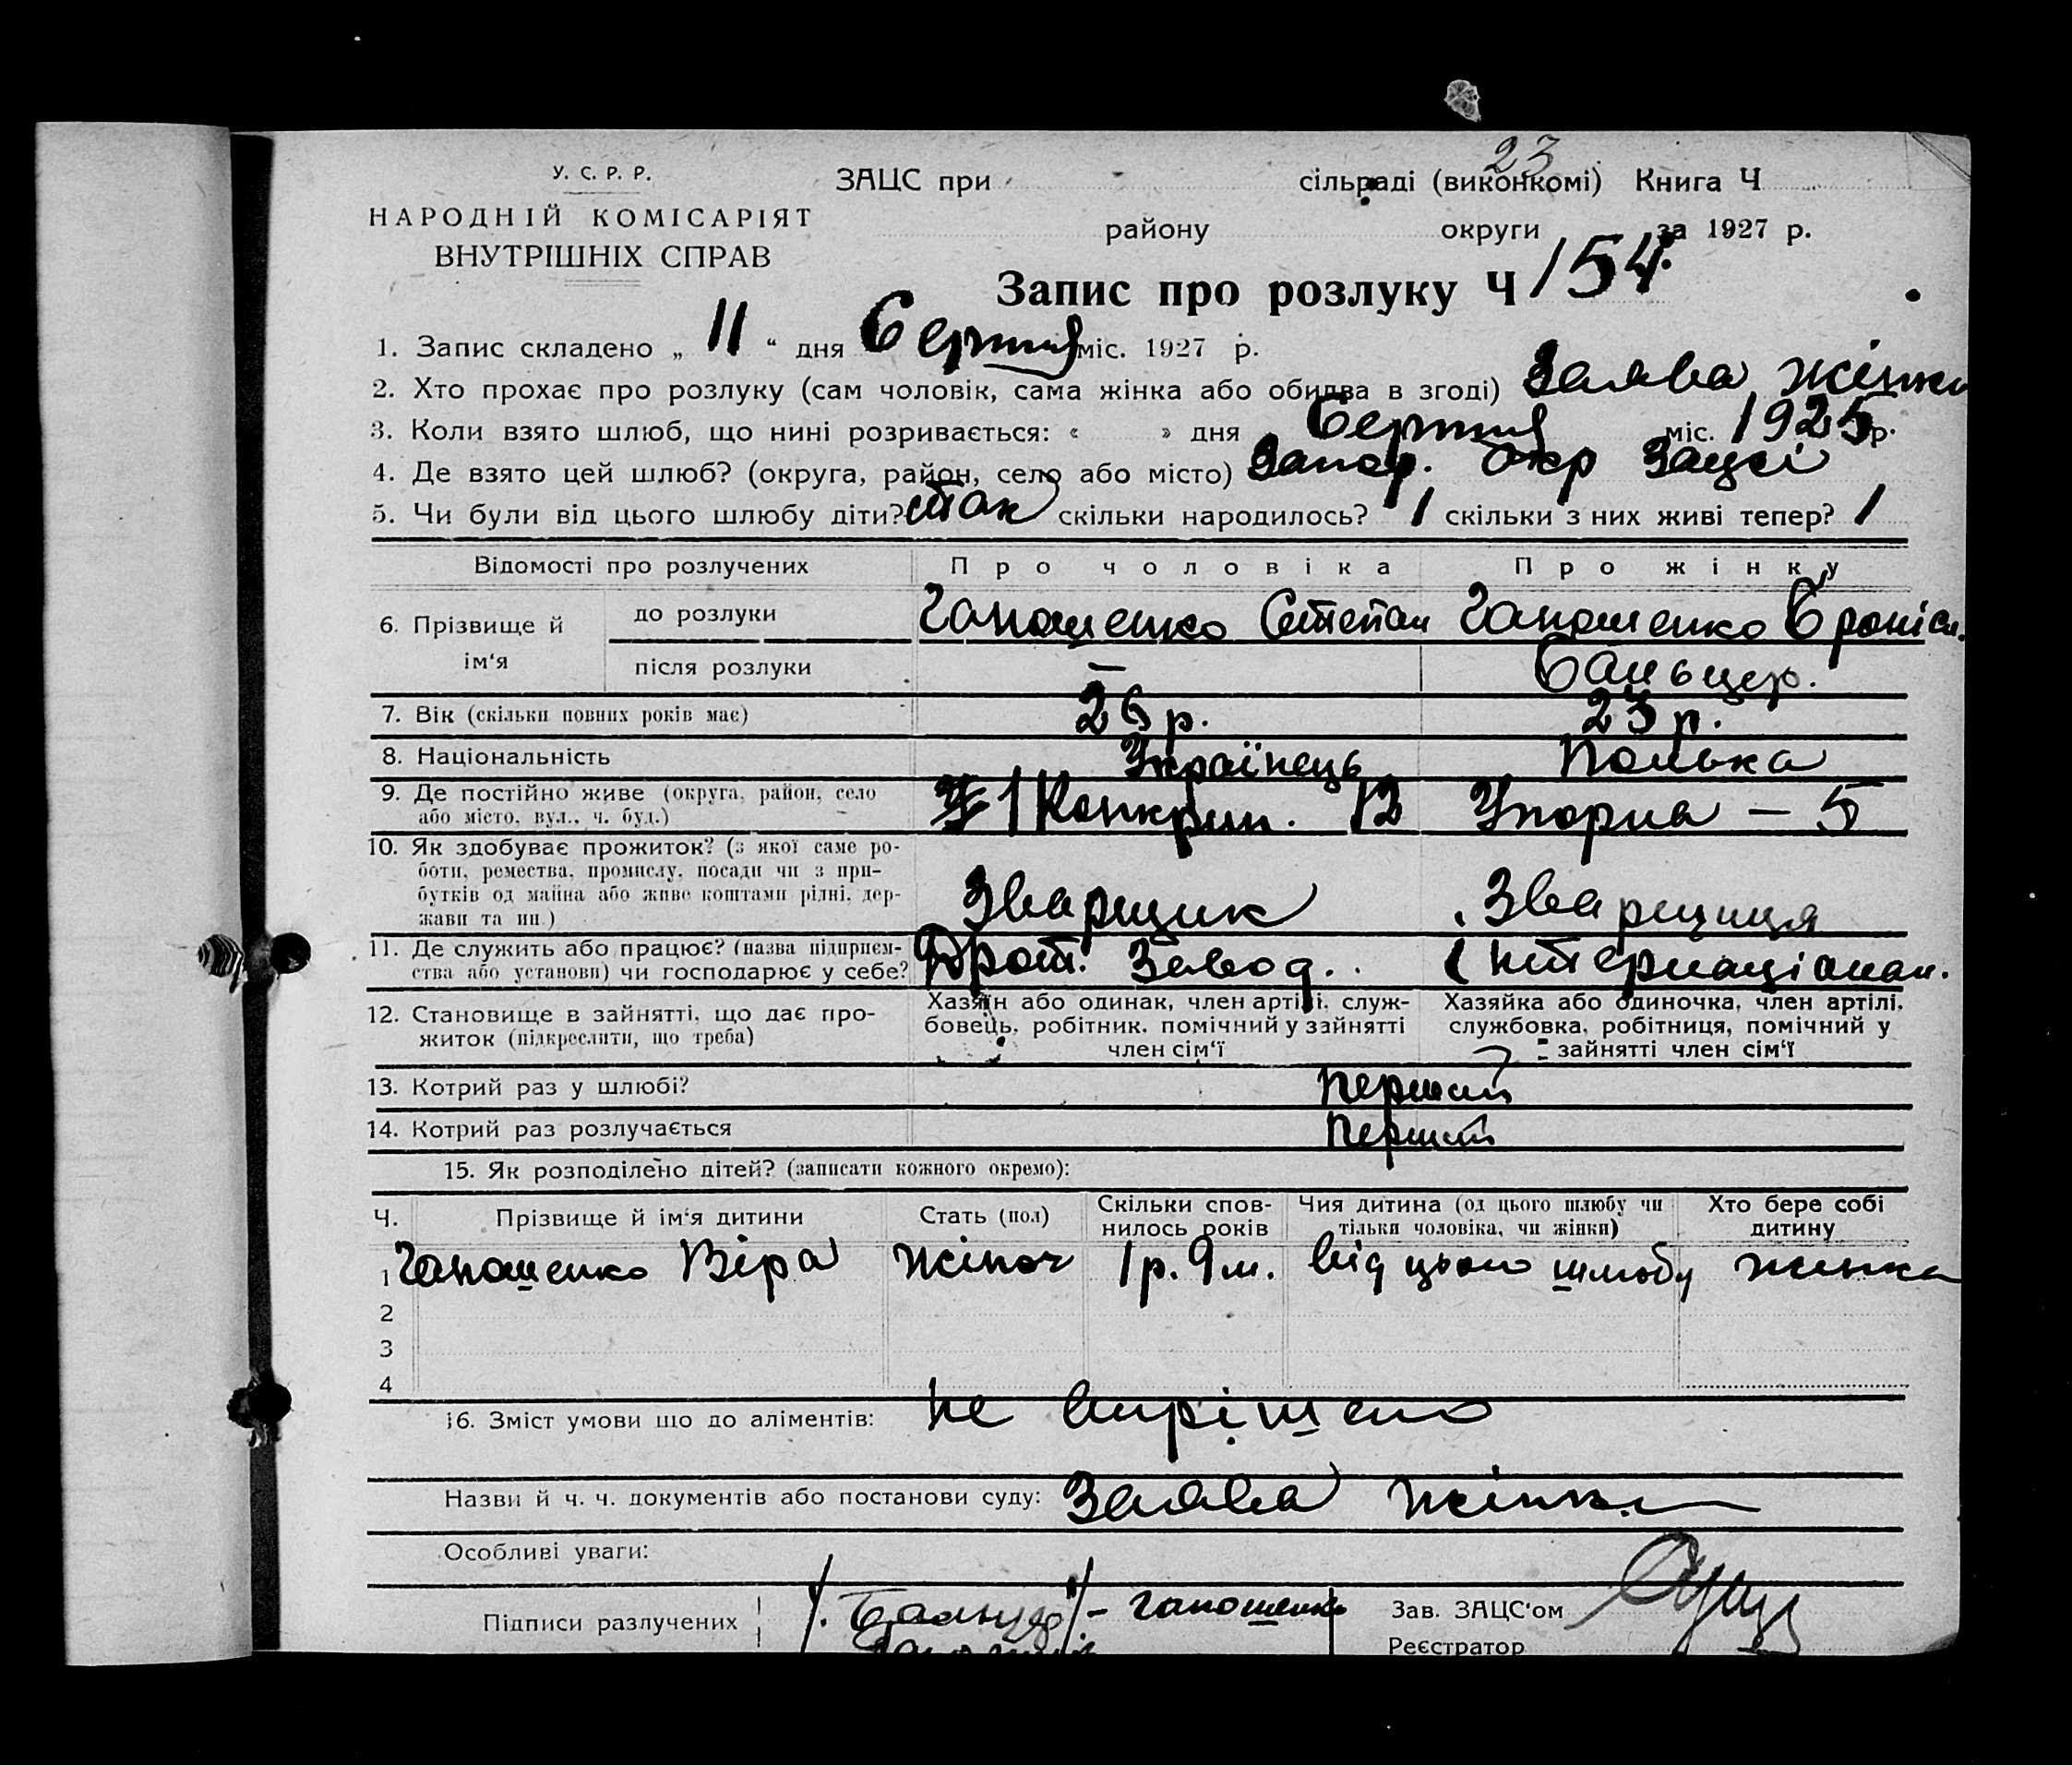 23
У. С. Р. Р.
ЗАЦС при сільраді (виконкомі) Книга Ч
НАРОДНІЙ КОМІСАРІЯТ
ВНУТРІШНІХ СПРАВ
району округи за 1927 р.
Запис про розлуку Ч 154.
1. Запис складено „ 11 “ дня Серпня міс. 1927 р.
2. Хто прохає про розлуку (сам чоловік, сама жінка або обидва в згоді) Заява жінки
3. Коли взято шлюб, що нині розривається: « » дня Серпня міс. 1925 р.
4. Де взято цей шлюб? (округа, район, село або місто) Запор. Окр Зацсі
5. Чи були від цього шлюбу діти? так скільки народилось? 1 скільки з них живі тепер? 1
Відомості про розлучених Про чоловіка Про жінку
6. Прізвище й ім‘я до розлуки Гапошенко Степан Гапошенко Бронісл.
після розлуки — Бальцер.
7. Вік (скільки повних років має) 26 р. 23 р.
8. Національність Українець Полька
9. Де постійно живе (округа, район, село
або місто, вул., ч. буд.) 12 Упорна — 5
10. Як здобуває прожиток? (з якої саме ро-
боти, ремества, промислу, посади чи з при-
бутків од майна або живе коштами рідні, дер-
жави та ин.) Зварщик Зварщиця
11. Де служить або працює? (назва підприєм-
ства або установи) чи господарює у себе? Дрот. Завод. Інтернаціонал.
12. Становище в зайнятті, що дає про-
житок (підкреслити, що треба)
Хазяїн або одинак, член артілі, служ-
бовець, робітник, помічний у зайнятті
член сім‘ї
Хазяйка або одиночка, член артілі,
службовка, робітниця, помічний у
зайнятті член сім‘ї
13. Котрий раз у шлюбі? перший
14. Котрий раз розлучається перший
15. Як розподілено дітей? (записати кожного окремо):
Ч. Прізвище й ім‘я дитини Стать (пол) Скільки спов-
нилось років Чия дитина (од цього шлюбу чи
тільки чоловіка, чи жінки) Хто бере собі
дитину
1 Гапошенко Віра жіноч 1 р. 9 м. від цього шлюбу жінка
2
3
4
16. Зміст умови що до аліментів: не вирішено
Назви й ч. ч. документів або постанови суду: Заява жінки
Особливі уваги:
Підписи разлучених Гапошенко Зав. ЗАЦС'ом
Реєстратор